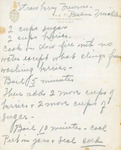 Strawberry Preserves
2 cups sugar
2 cups berries
Cook in slow fire with no
water except what clings from
washing berries.
Boil 5 minutes
Then add 2 more cups of
berries and 2 more cups of
sugar.
Boil 10 minutes - cool
Put in jars & seal cold